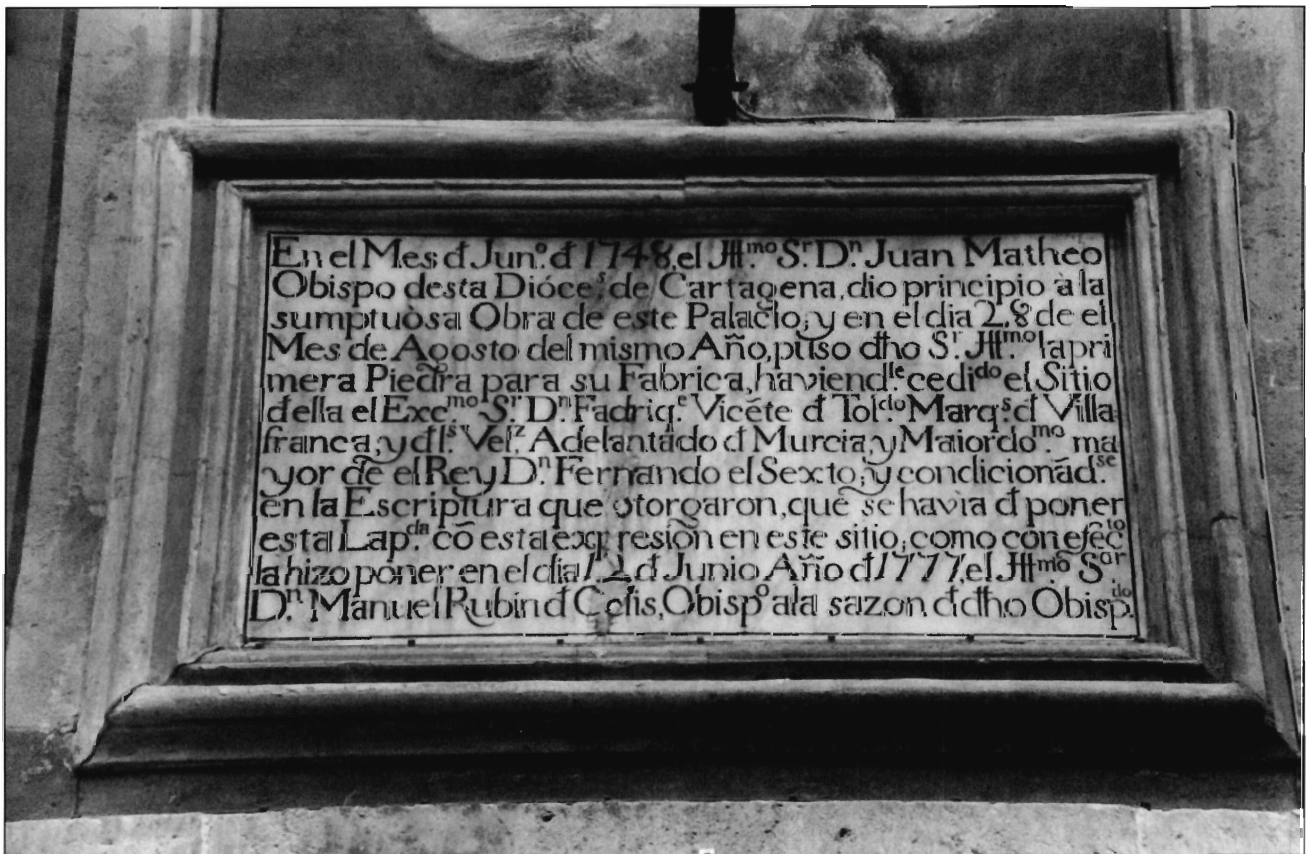 En el Mes đ Jun.º đ 1748, el Jll.mo S.r D.n Juan Matheo
Obispo desta Dióce.s de Cartagena, dio principio à la
sumptuòsa Obra de este Palacio; y en el dia 28 de el
Mes de Agosto del mismo Año, puso đho S.r Jll.mo la pri
mera Piedra para su Fabrica, haviend.le cedi.do el Sitio
đella el Exc.mo S.r D.n Fadriq.e Vicẽte đ Tol.do Marq.s đ Villa
franca, y đ l.s Vel.z Adelantado đ Murcia, y Maiordo.mo ma
yor de el Rey D.n Fernando el Sexto; y condicionãd.se
en la Escriptura que otorgaron, que se havia đ poner
esta Lap.da cõ esta expresion en este sitio; como con efec.to
la hizo poner en el dia 12 đ Junio Año đ 1777, el Jll.mo S.or
D.n Manuel Rubin đ Celis, Obisp.o a la sazon đ đho Obisp.do